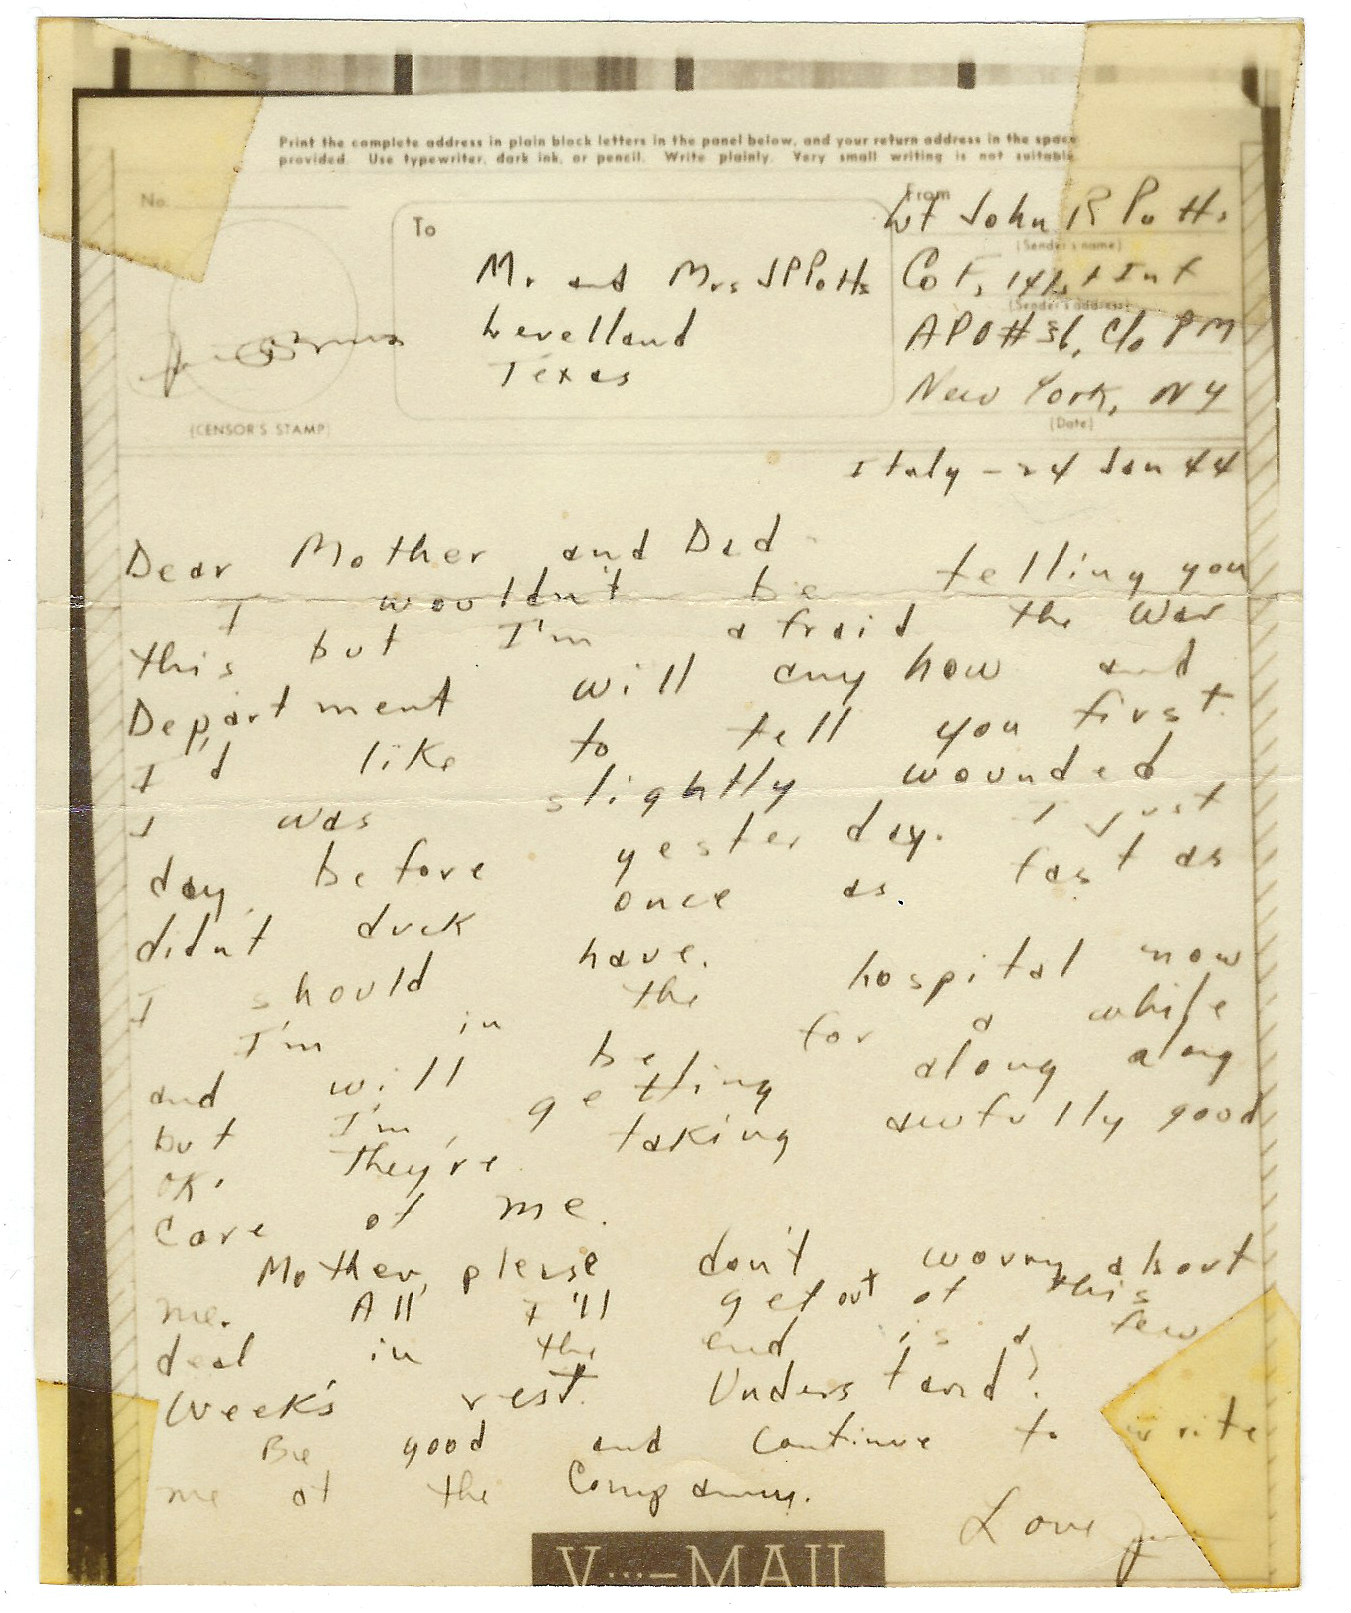 Print the complete address in plain block letters in the panel below, and your return address in the space
provided. Use typewriter, dark ink, or pencil. Write plainly. Very small writing is not suitable.
No.
To
From
Mr. and Mrs JPPotts
Levelland
Texas
(CENSOR'S STAMP)
Lt John R Potts
(Sender's name)
Co F, 141st Inf
(Sender's address)
APO #36, C/o PM
New York, NY
(Date)
Italy - 24 Jan 44
Dear Mother and Dad -
I wouldn't be telling you
this but I'm afraid the War
Department will anyhow and
I'd like to tell you first.
I was slightly wounded
day before yesterday. I just
didn't duck once as fast as
I should have.
I'm in the hospital now
and will be for a while
but I'm getting along along
OK. They're taking awfully good
care of me.
Mother, please don't worry about
me. All I'll get out of this
deal in the end is a few
week's rest. Understand?
Be good and continue to write
me at the Company.
Love
V···—MAIL